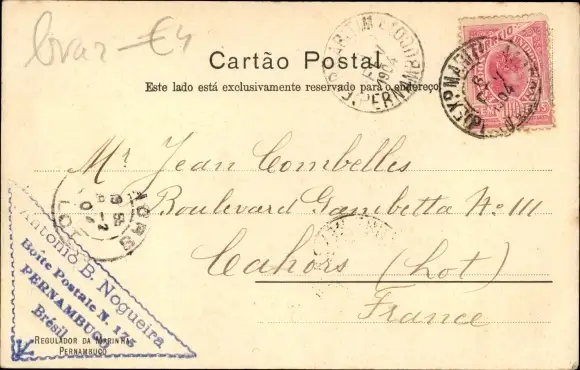 Cartão Postal
Este lado está exclusivamente reservado para o endereço
Mr Jean Combelles
Boulevard Gambetta No 111
Cahors (Lot)
France
Antonio B. Nogueira
Boîte Postale N. 175
PERNAMBUCO
Brésil
REGULADOR DA MARINHA
PERNAMBUCO
CAHORS
LOT
1904